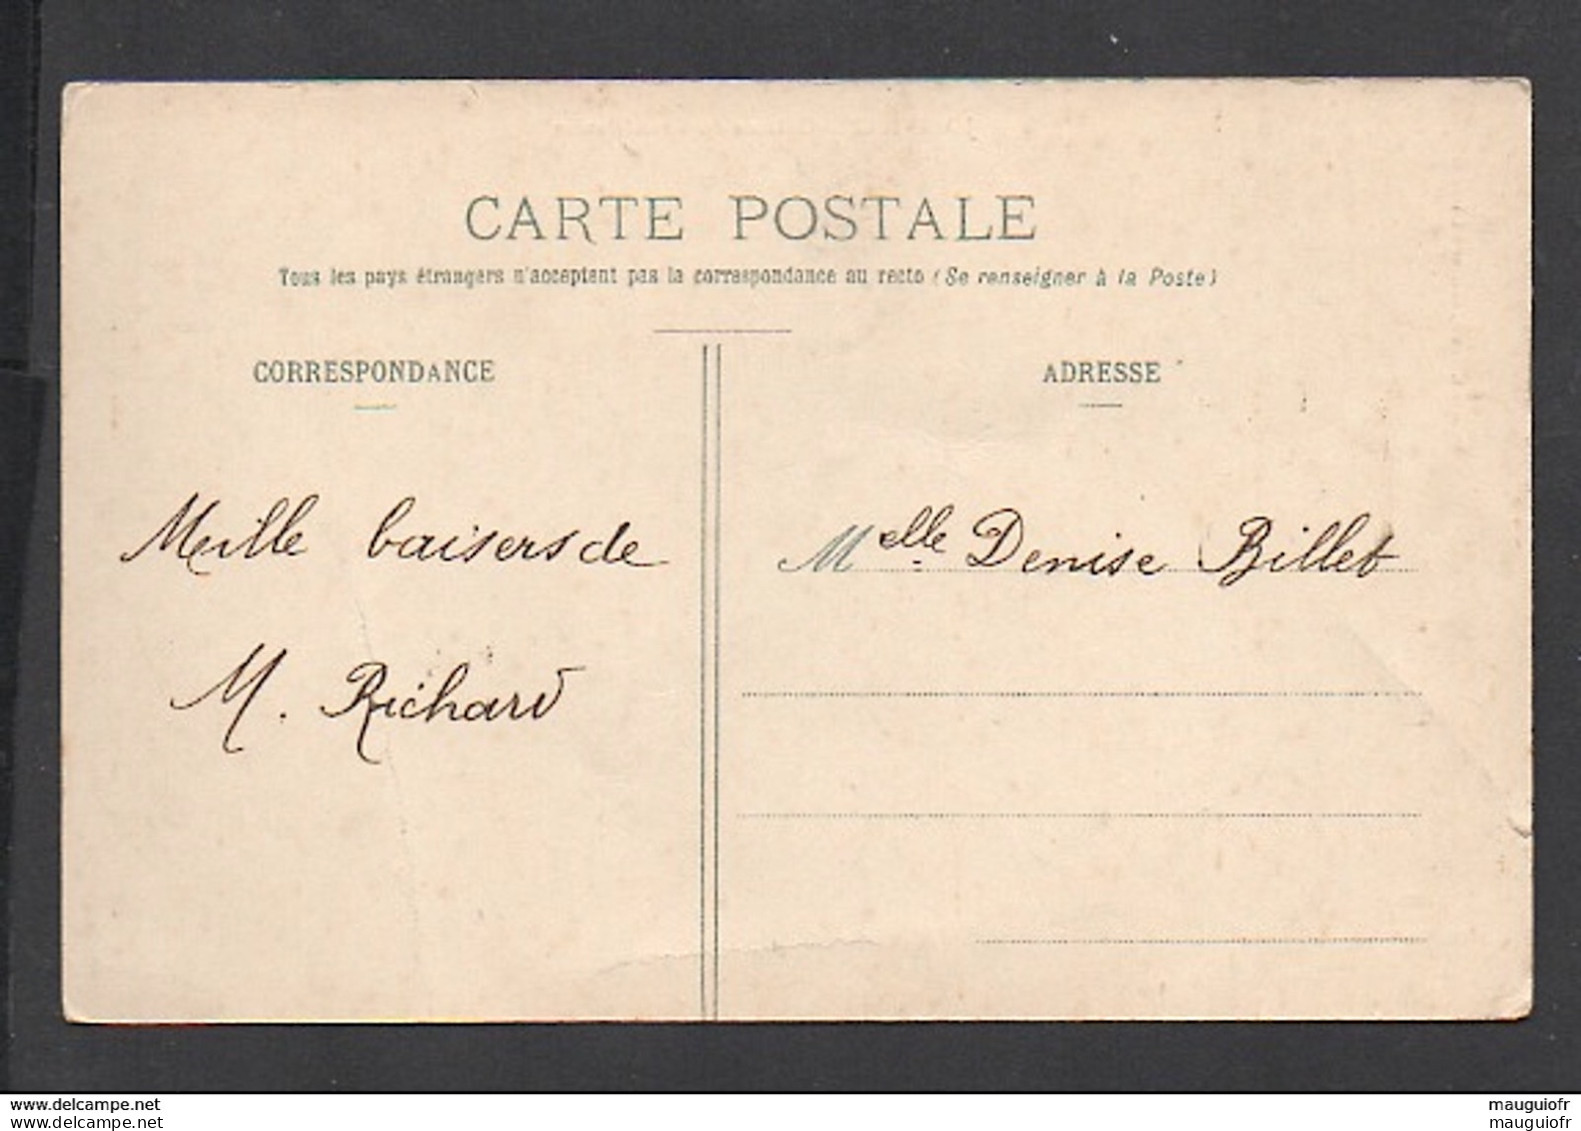 CARTE POSTALE
Tous les pays étrangers n'acceptent pas la correspondance au recto (Se renseigner à la Poste)
CORRESPONDANCE
ADRESSE
Meille baisers de
M. Richard
Melle Denise Billet
www.delcampe.net
www.delcampe.net
mauguiofr
mauguiofr